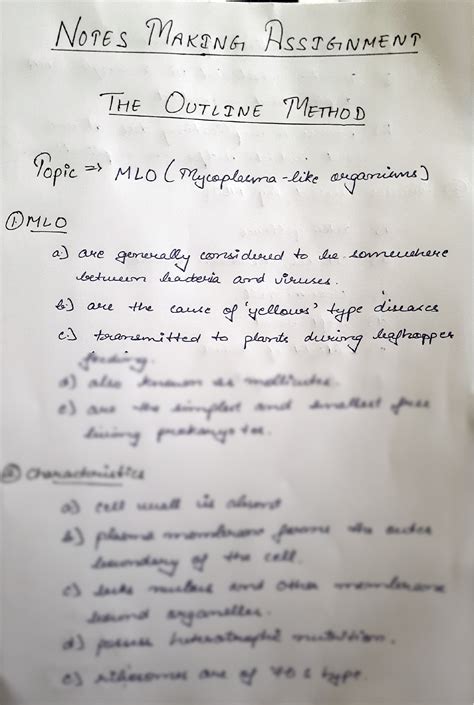 NOTES MAKING ASSIGNMENT
THE OUTLINE METHOD
Topic ⇒ MLO (Mycoplasma-like organisms)
① MLO
a) are generally considered to be somewhere
between bacteria and viruses.
b) are the cause of 'yellows' type diseases
c) transmitted to plants during leafhopper
feeding.
d) also known as mollicutes.
e) are the simplest and smallest free
living prokaryotes.
② Characteristics
a) cell wall is absent
b) plasma membrane forms the outer
boundary of the cell.
c) lacks nucleus and other membrane
bound organelles.
d) possess heterotrophic nutrition.
e) ribosomes are of 70 s type.